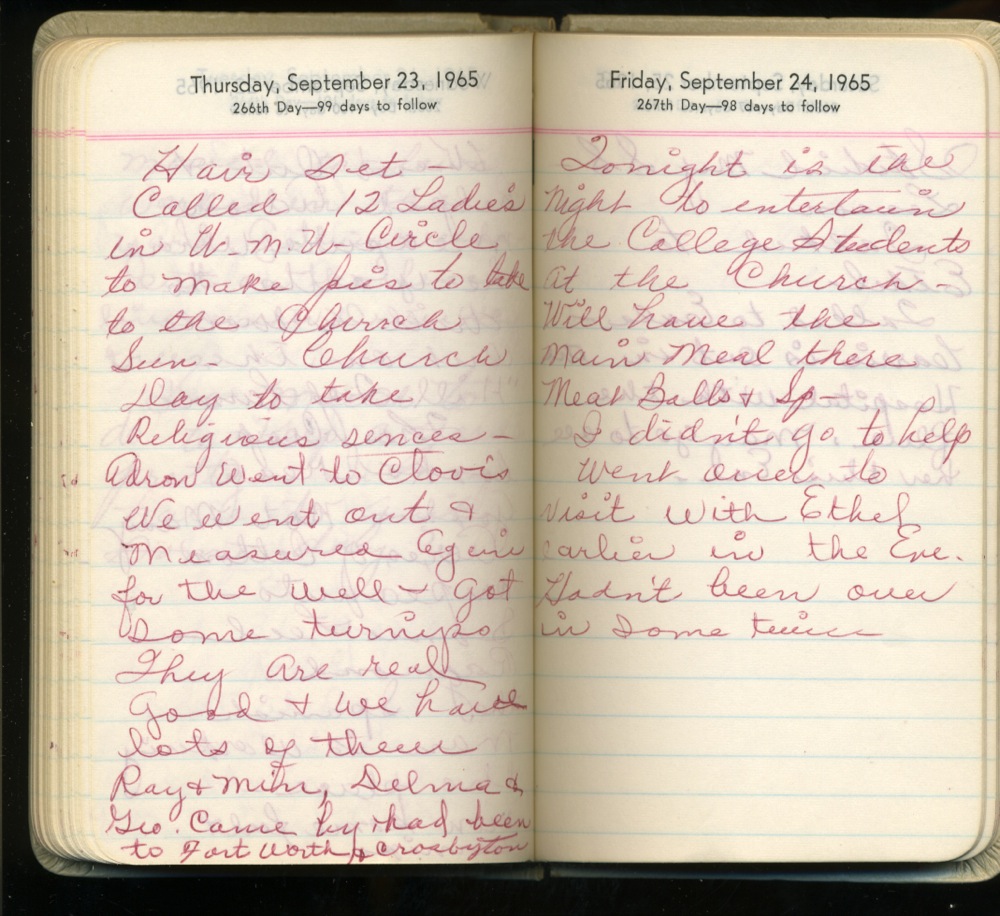 Thursday, September 23, 1965
266th Day—99 days to follow
Hair Set -
Called 12 Ladies
in W. M. U- Circle
to make pies to take
to the Church
Sun- Church
Day to take
Religious senses -
Adron Went to Clovis
We went out &
Measured Again
for the well - Got
Some turnips
They Are real
Good & we have
lots of them
Ray & Mim, Delma &
Geo. Came by & had been
to Fort Worth & Crosbyton
Friday, September 24, 1965
267th Day—98 days to follow
Tonight is the
Night to entertain
the College Students
at the Church -
Will have the
Main Meal there
Meat Balls & Sp-
I didn't go to help
Went over to
visit with Ethel
earlier in the Eve.
Hadn't been over
in Some time